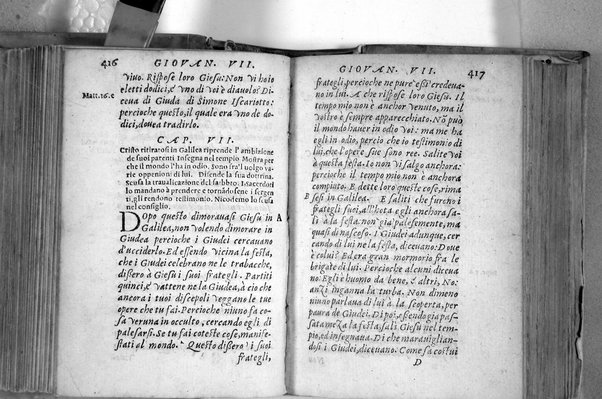 416
GIOVAN. VII.
viuo. Rispose loro Giesu: Non vi hò io
eletti dodici, è vno di voi è diauolo? Di
ceua di Giuda di Simone Iscariotto:
Matt. 16. c
percioche questo, il quale era vno de do-
dici, doueua tradirlo.
CAP. VII.
Cristo ritiratosi in Galilea riprende l'ambizione
de suoi parenti. Insegna nel tempio. Mostra per
che il mondo l'ha in odio. Sono fra'l uolgo va-
rie oppenioni di lui. Difende la sua dottrina.
Scusa la trauallicazione del sabbato. I sacerdoti
lo mandano à prendere e tornádosene i sergen-
ti, gli rendono testimonio. Nicodemo lo scusa
nel consiglio.
DOpo questo dimorauasi Giesu in
A
Galilea, non volendo dimorare in
Giudea percioche i Giudei cercauano
d'ucciderlo. Ed essendo vicina la festa,
che i Giudei celebrano ne le trabacche,
dissero à Giesu i suoi frategli. Partiti
quinci, è vattene ne la Giudea, à cio che
ancora i tuoi discepoli veggano le tue
opere che tu fai. Percioche niuno fa co-
sa veruna in occulto, cercando egli di
palesarsi. Se tu fai coteste cose, manife-
stati al mondo. Questo dissero i suoi
frategli,
GIOVAN. VII.
417
frategli, percioche ne pure essi credeua-
no in lui. A che rispose loro Giesu. Il
tempo mio non è anchor venuto, ma il
vostro è sempre apparecchiato. Nõ può
il mondo hauer in odio voi: ma me ha
egli in odio, percio che io testimonio di
lui, che l'opere sue sono ree. Salite voi
à questa festa. Io non vi salgo anchora:
percioche il tempo mio non è anchora
compiuto. E dette loro queste cose, rima
B
sesi in Galilea. E saliti che furono i
frategli suoi, alhota egli anchora sa-
lì à la festa. non già palesemente, ma
quasi di nascoso. I Giudei adunque, cer
cando di lui ne la festa, diceuano: Doue
è colui? Ed era gran mormorio fra le
brigate di lui. Percioche alcuni diceua
no: Egli è huomo da bene, è altri, No:
anzi inganna la turba. Non dimeno
niuno parlaua di lui à la scoperta, per
paura de Giudei. Di poi, essendo gia pas-
sata meza la festa, salì Giesu nel tem-
pio, ed insegnaua. Di che marauiglian-
dosi i Giudei, diceuano. Come sa costui
D